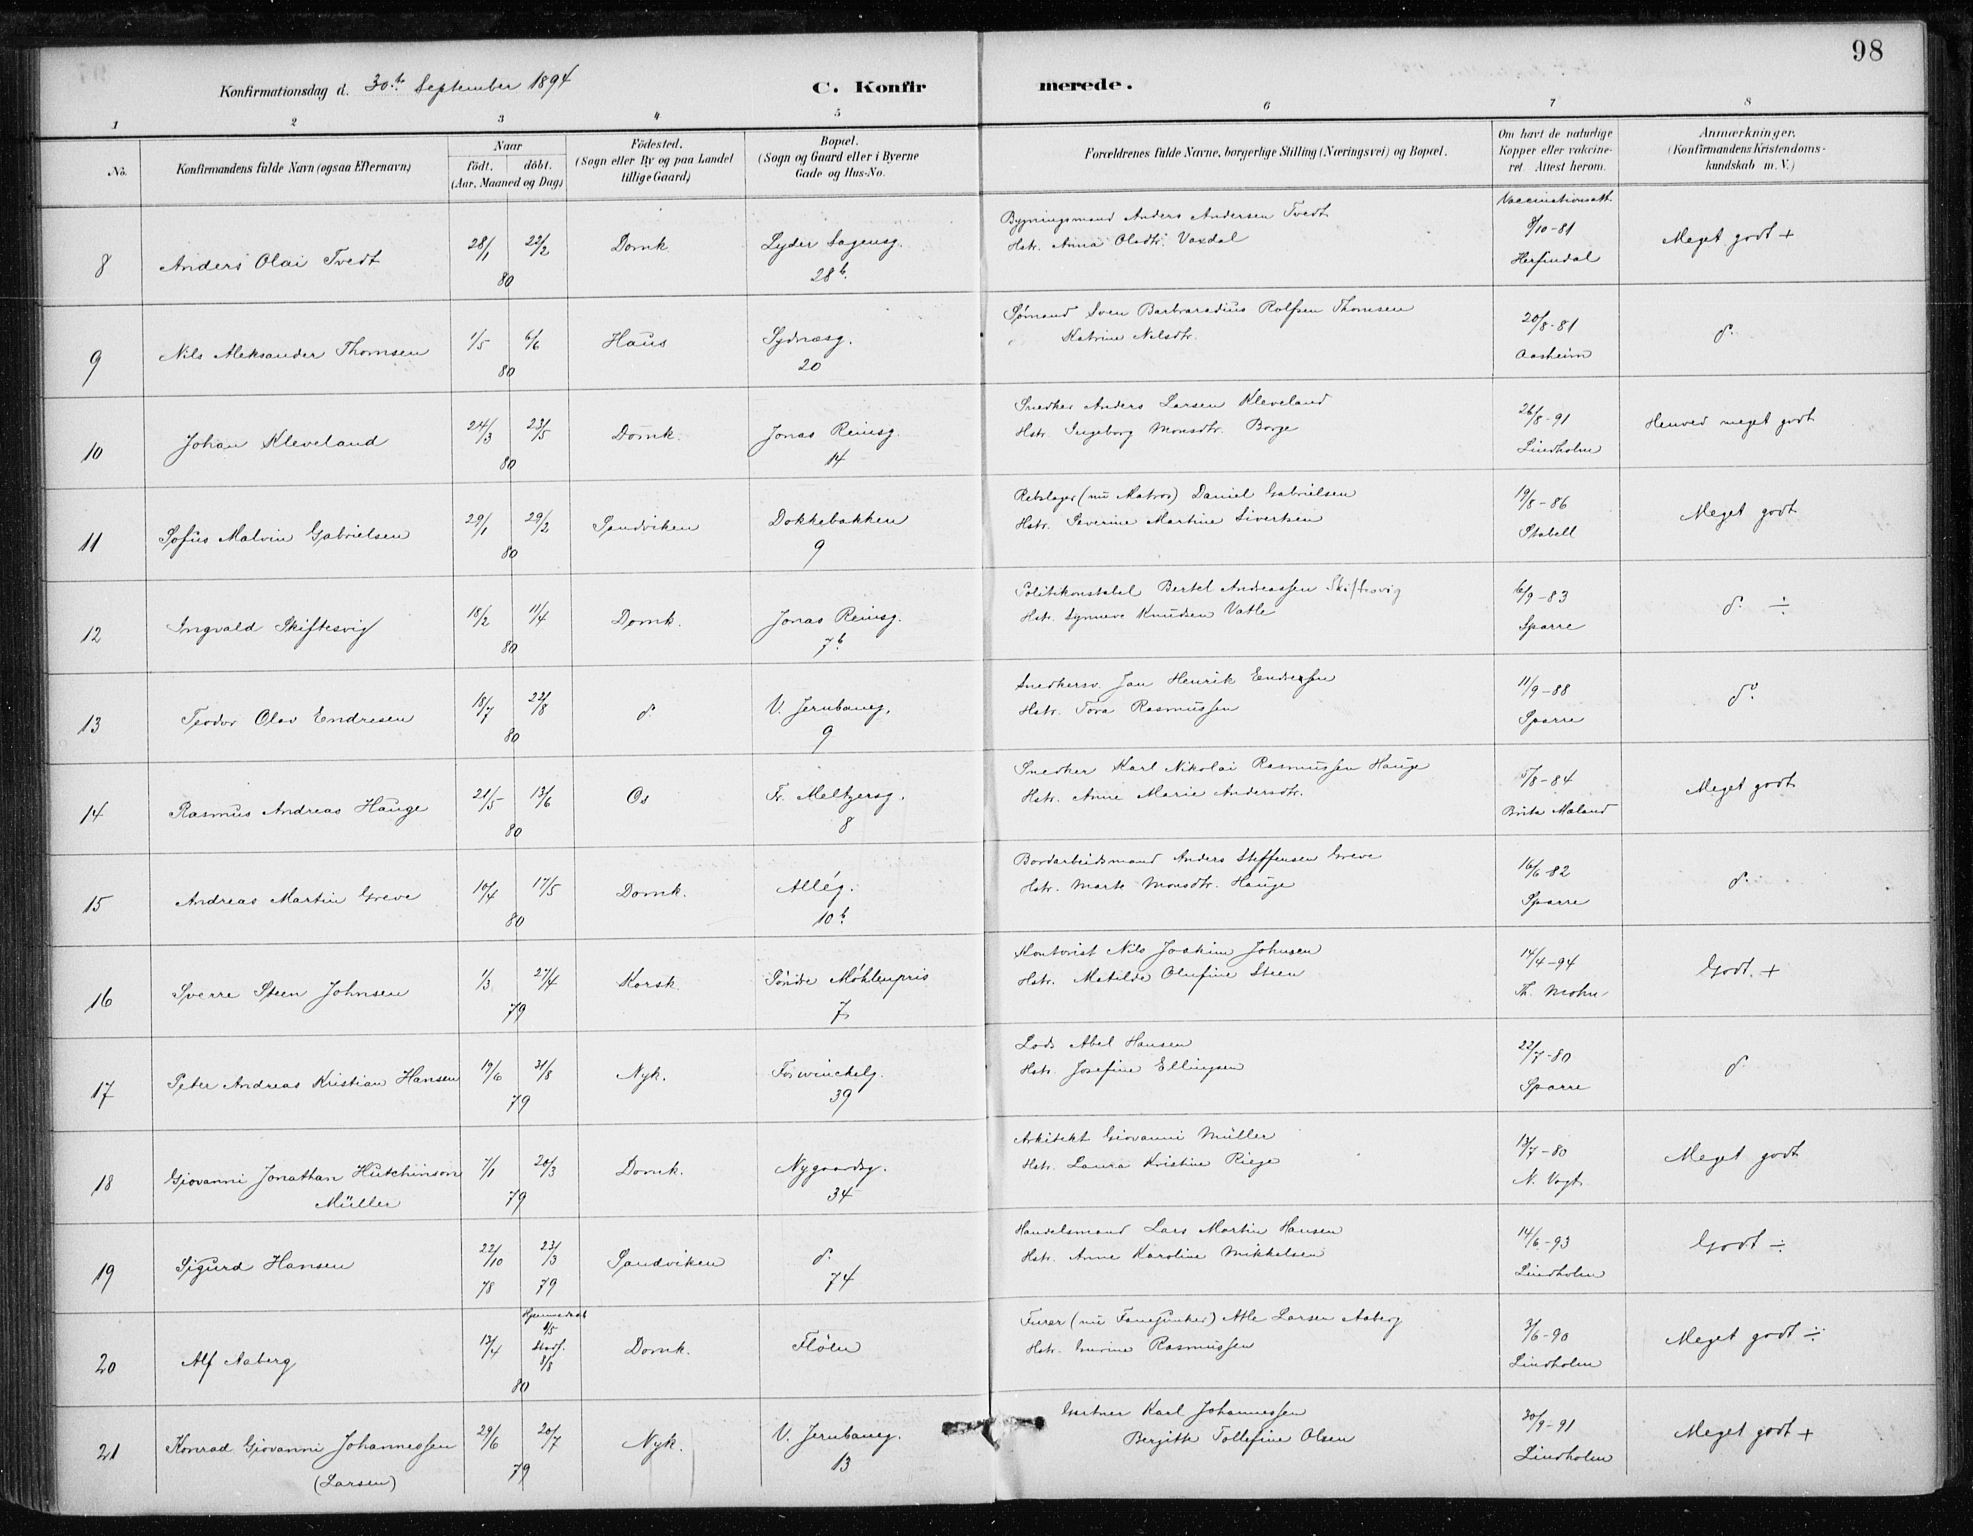 98
Konfirmationsdag d. 30te September 1894
C. Konfirmerede.
1 2 3 4 5 6 7 8
No. Konfirmandens fulde Navn (ogsaa Efternavn) Naar födt. döbt. (Aar, Maaned og Dag) Födested. (Sogn eller By og paa Landet tillige Gaard) Bopæl. (Sogn og Gaard eller i Byerne Gade og Hus-No. Forældrenes fulde Navne, borgerlige Stilling (Næringsvei) og Bopæl. Om havt de naturlige Kopper eller vakcineret. Attest herom. Anmærkninger. (Konfirmandens Kristendomskundskab m. V.)
Vaccinationsatt.
8 Anders Olai Tvedt 28/1 22/2 80 Domk Lyder Sagensg. 28b.
Bygningsmand Anders Andersen Tvedt
Hstr. Anna Olsdtr. Vaxdal
8/10-81 Herfindal Meget godt +
9 Nils Aleksander Thomsen 1/5 6/6 80 Haus Sydnæsg. 20
Sømand Sven Barbraradius Rolfsen Thomsen
Katrine Nilsdtr.
20/8-81 Aasheim d.
10 Johan Kleveland 24/3 23/5 80 Domk. Jonas Reinsg. 14
Snedker Anders Larsen Kleveland
Hstr. Ingeborg Monsdtr. Borge
26/8-91 Lindholm Henved meget godt
11 Sofus Malvin Gabrielsen 29/1 29/2 80 Sandviken Dokkebakken 9
Rebslager (nu Matros) Daniel Gabrielsen
Hstr. Severine Martine Sivertsen
19/8-86 Stabell Meget godt
12 Ingvald Skiftesvig 18/2 11/4 80 Domk. Jonas Reinsg. 7b
Politikonstabel Bertel Andreassen Skiftesvig
Hstr. Synneve Knudsen Vatle
6/9-83 Sparre d. ÷
13 Teodor Olav Endresen 18/7 22/8 80 d. V. Jernbaneg. 9
Snedkersv. Jan Henrik Endresen
Hstr. Tora Rasmussen
11/9-88 Sparre do
14 Rasmus Andreas Hauge 21/5 13/6 80 Os Fr. Meltzersg. 8
Snedker Karl Nikolai Rasmussen Hauge
Hstr. Anne Marie Andersdtr.
5/8-84 Brita Maland Meget godt
15 Andreas Martin Greve 10/4 17/5 80 Domk. Allég. 10b
Bordarbeidsmand Anders Steffensen Greve
Hstr. Marte Monsdtr. Hauge
16/6 82 Sparre d.
16 Sverre Steen Johnsen 1/3 27/4 79 Korsk. Søndre Møhlenpris 7
Kontorist Nils Joakim Johnsen
Hstr. Matilde Olufine Steen
14/4-94 Th. Mohn Godt. +
17 Peter Andreas Kristian Hansen 19/6 31/8 79 Nyk. Forswinckelg. 39
Lods Abel Hansen
Hstr. Josefine Ellingsen
22/7-80 Sparre d.
18 Giovanni Jonathan Hutchinson Müller 7/1 20/3 79 Domk. Nygaardsg. 34
Arkitekt Giovanni Müller
Hstr. Laura Kristine Riege
13/7-80 N. Vogt Meget godt
19 Sigurd Hansen 22/10 78 23/3 79 Sandviken d. 74
Handelsmand Lars Martin Hansen
Hstr. Anne Karoline Mikkelsen
14/6-93 Lindholm Godt ÷
20 Alf Aaberg 13/4 Hjemmedøbt 1/5 Stadf. 8/8 80 Domk. Fløen
Furer (nu Fanejunker) Atle Larsen Aaberg
Hstr. Murine Rasmussen
3/6-90 Lindholm Meget godt ÷
21 Konrad Giovanni Johannessen (Larsen) 29/6 20/7 79 Nyk. V. Jernbaneg. 13
Gartner Karl Johannessen
Bergitte Tollefine Olsen
30/9-91 Lindholm Meget godt +